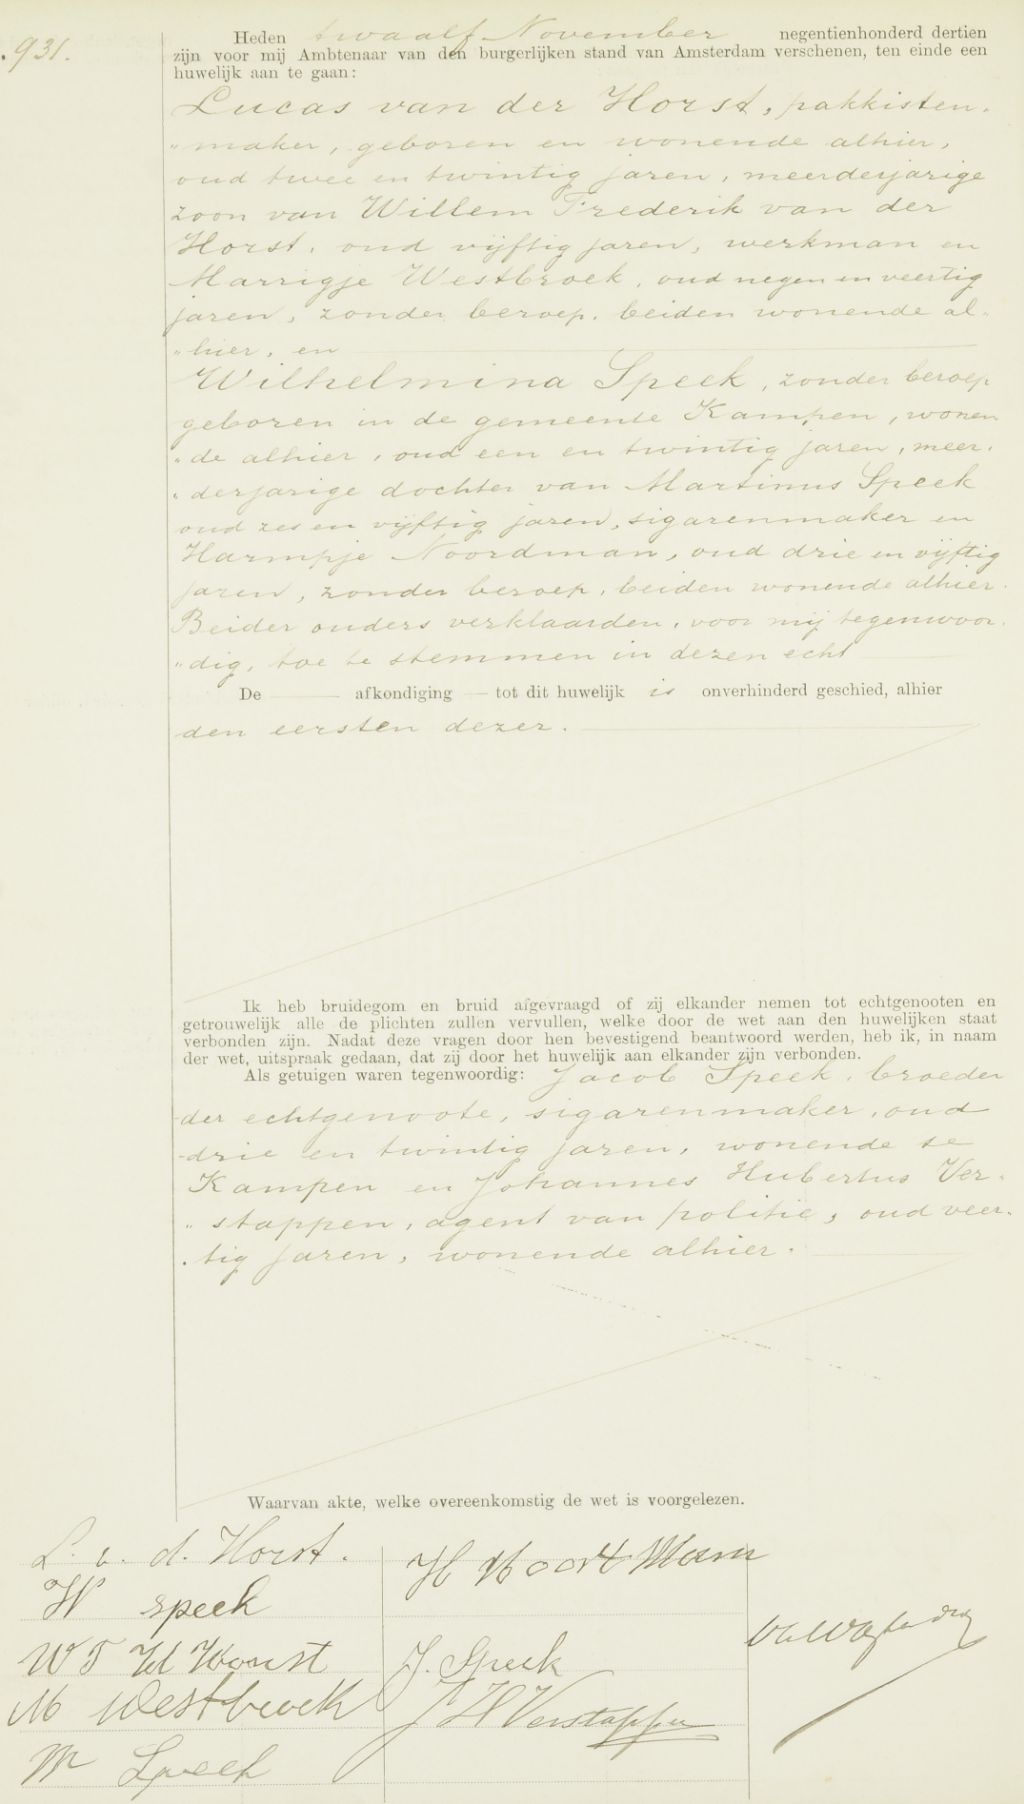 931.
Heden twaalf November negentienhonderd dertien
zijn voor mij Ambtenaar van den burgerlijken stand van Amsterdam verschenen, ten einde een
huwelijk aan te gaan:
Lucas van der Horst, pakkisten-
"maker, geboren en wonende alhier,
oud twee en twintig jaren, meerderjarige
zoon van Willem Frederik van der
Horst, oud vijftig jaren, werkman en
Marrigje Westbroek, oud negen en veertig
jaren, zonder beroep, beiden wonende al-
"hier, en
Wilhelmina Speek, zonder beroep
geboren in de gemeente Kampen, wonen
"de alhier, oud een en twintig jaren, meer-
"derjarige dochter van Martinus Speek
oud zes en vijftig jaren, sigarenmaker en
Harmpje Noordman, oud drie en vijftig
jaren, zonder beroep, beiden wonende alhier.
Beider ouders verklaarden, voor mij tegenwoor-
"dig, toe te stemmen in dezen echt
De afkondiging tot dit huwelijk is onverhinderd geschied, alhier
den eersten dezer.
Ik heb bruidegom en bruid afgevraagd of zij elkander nemen tot echtgenooten en
getrouwelijk alle de plichten zullen vervullen, welke door de wet aan den huwelijken staat
verbonden zijn. Nadat deze vragen door hen bevestigend beantwoord werden, heb ik, in naam
der wet, uitspraak gedaan, dat zij door het huwelijk aan elkander zijn verbonden.
Als getuigen waren tegenwoordig: Jacob Speek, broeder
der echtgenoote, sigarenmaker, oud
drie en twintig jaren, wonende te
Kampen en Johannes Hubertus Ver-
"stappen, agent van politie, oud veer-
"tig jaren, wonende alhier.
Waarvan akte, welke overeenkomstig de wet is voorgelezen.
L. v. d. Horst.
W speek
W F Horst
M Westbroek
M Speek
H Noort Man
J. Speek
J H Verstappen